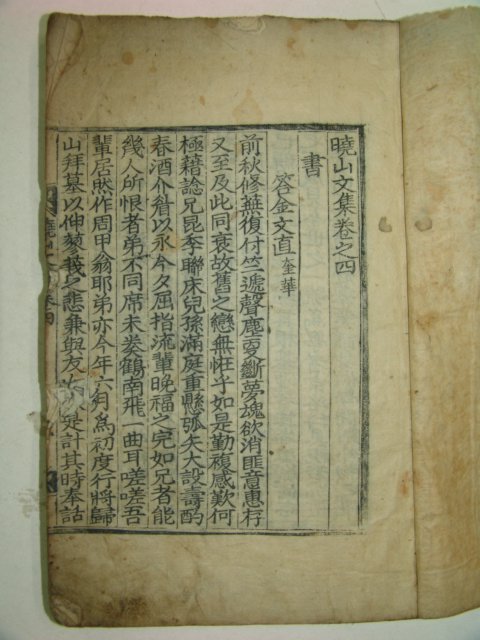 曉山文集卷之四
書
答金文直 奎華
前秋修蕪復付竺遞聲塵敻斷夢魂欲消匪意惠存
又至及此同衰故舊之戀無恠乎如是勤複感歎何
極藉諗兄昆季聯床兒孫滿庭重懸弧矢大設壽酌
春酒介眉以永今夕屈指流輩晚福之完如兄者能
幾人所恨者弟不同席未奏鶴南飛一曲耳嗟嗟吾
輩居然作周甲翁耶弟亦今年六月爲初度行將歸
山拜墓以伸蓼莪之悲兼與友 是計其時奉話
曉山文
卷四